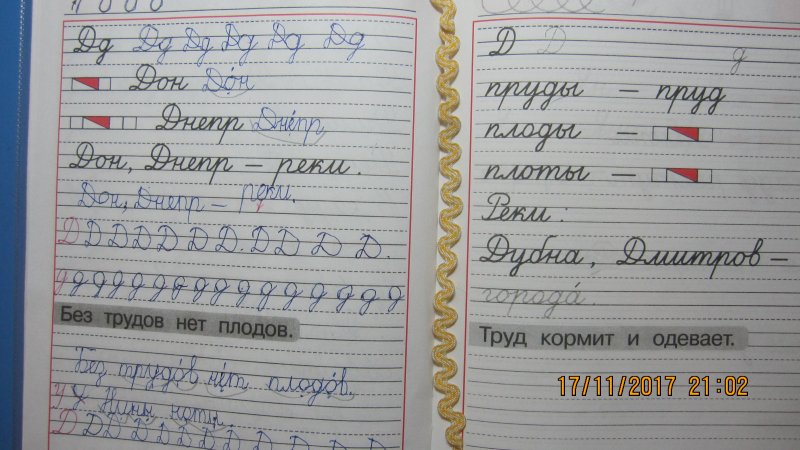 Дд Дд Дд Дд Дд Дд
Дон Дон
Днепр Днепр
Дон, Днепр – реки.
Дон, Днепр – реки.
Д Д Д Д Д Д Д. Д Д Д Д.
д д д д д д д д д д д д д д д д
Без трудов нет плодов.
Без трудо́в не́т плодо́в.
У Нины ноты.
Д Д Д Д Д Д Д Д Д Д Д Д
Д Д
д
пруды – пруд
плоды –
плоты –
Реки:
Дубна, Дмитров –
города́.
Труд кормит и одевает.
17/11/2017 21:02